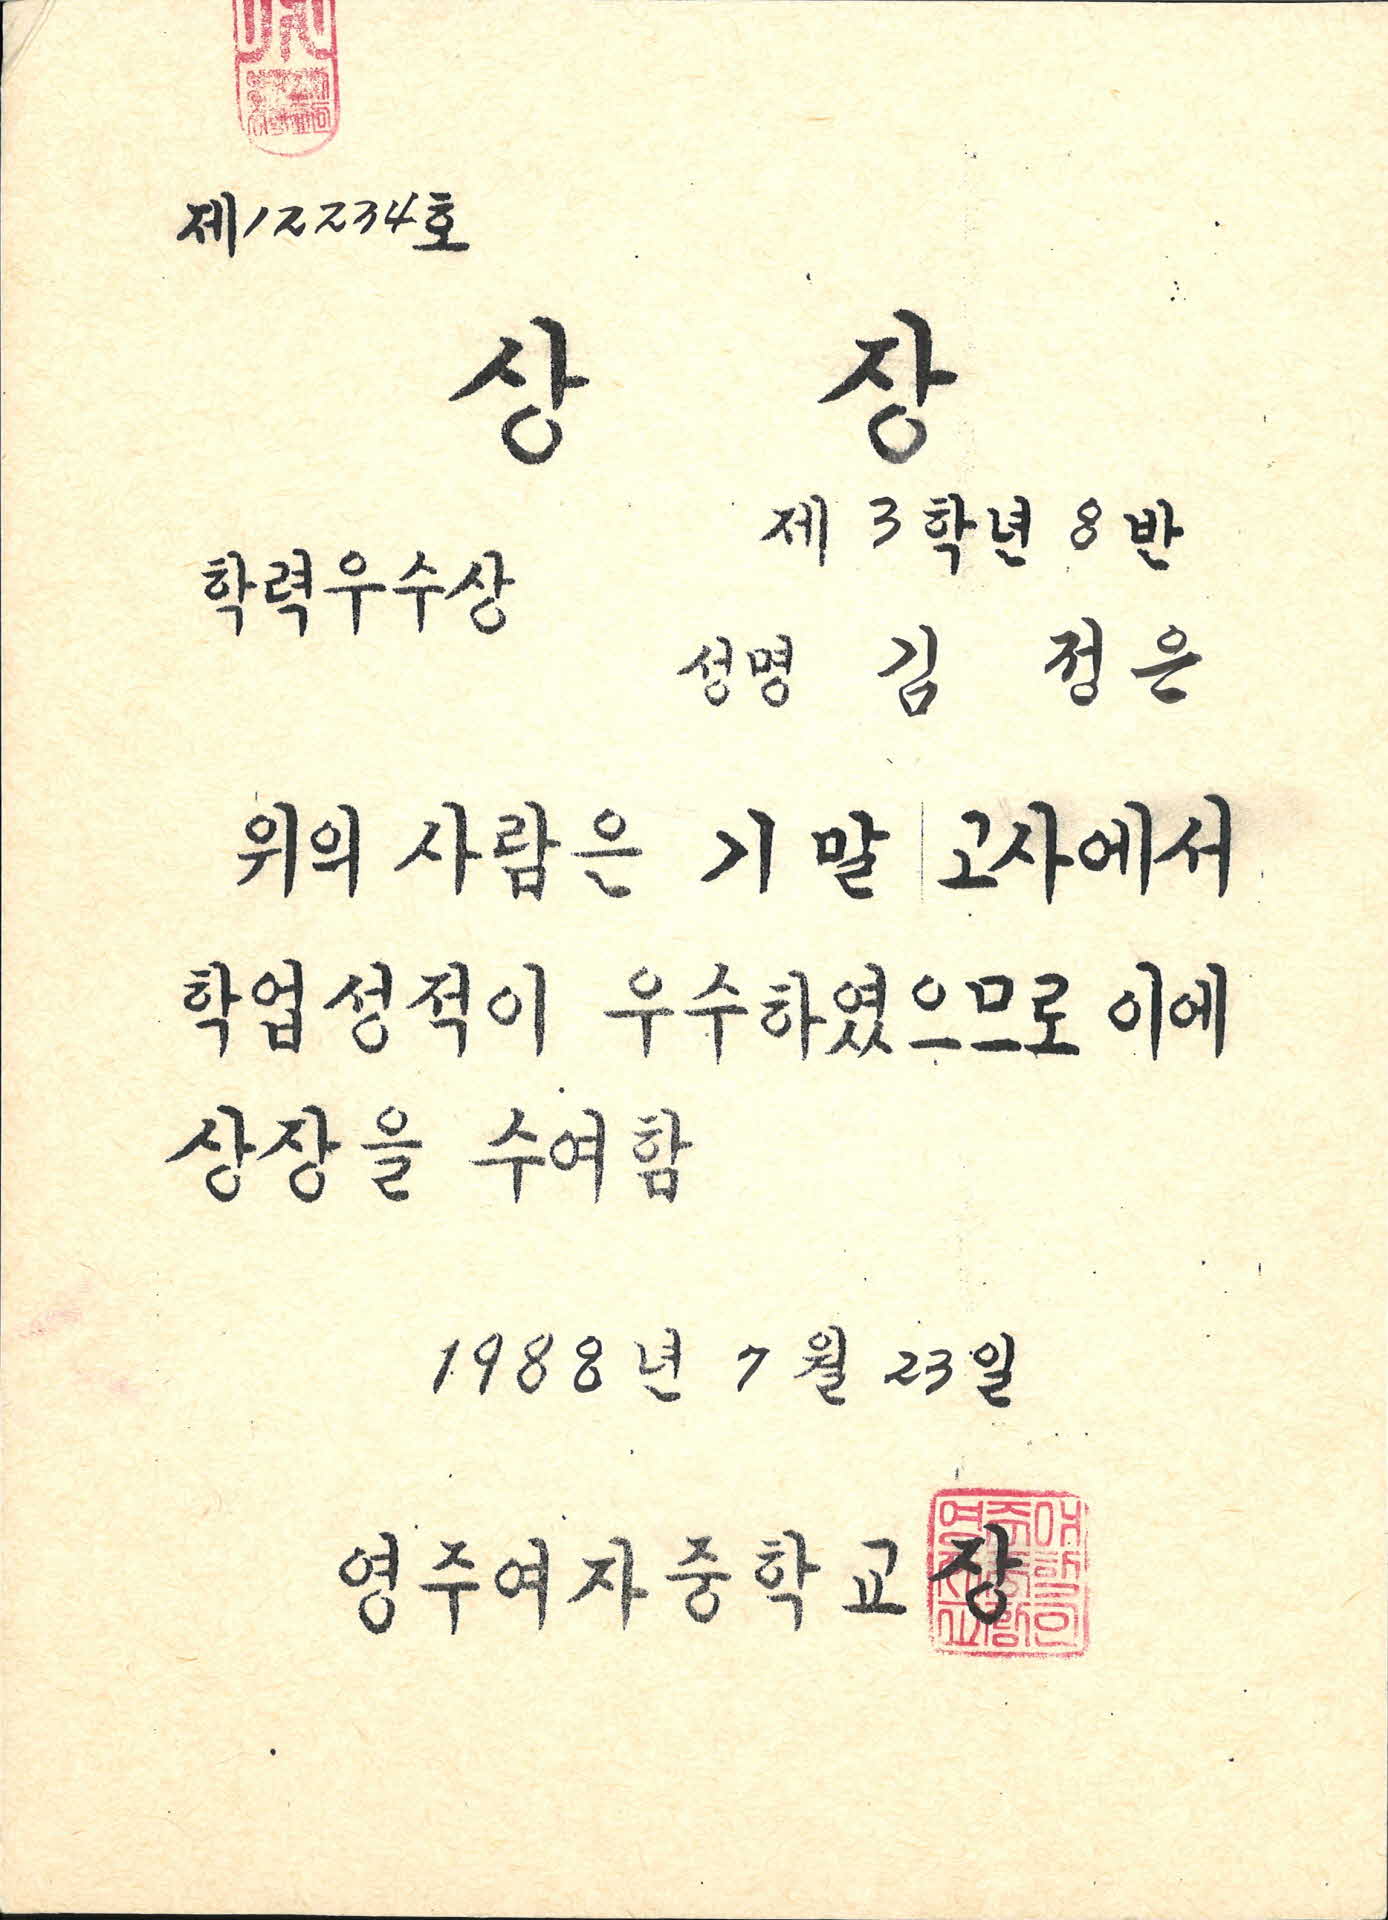 제12234호
상 장
제 3 학년 8 반
학력우수상
성명 김 정은
위의 사람은 기말 고사에서
학업성적이 우수하였으므로 이에
상장을 수여함
1988년 7월 23일
영주여자중학교장